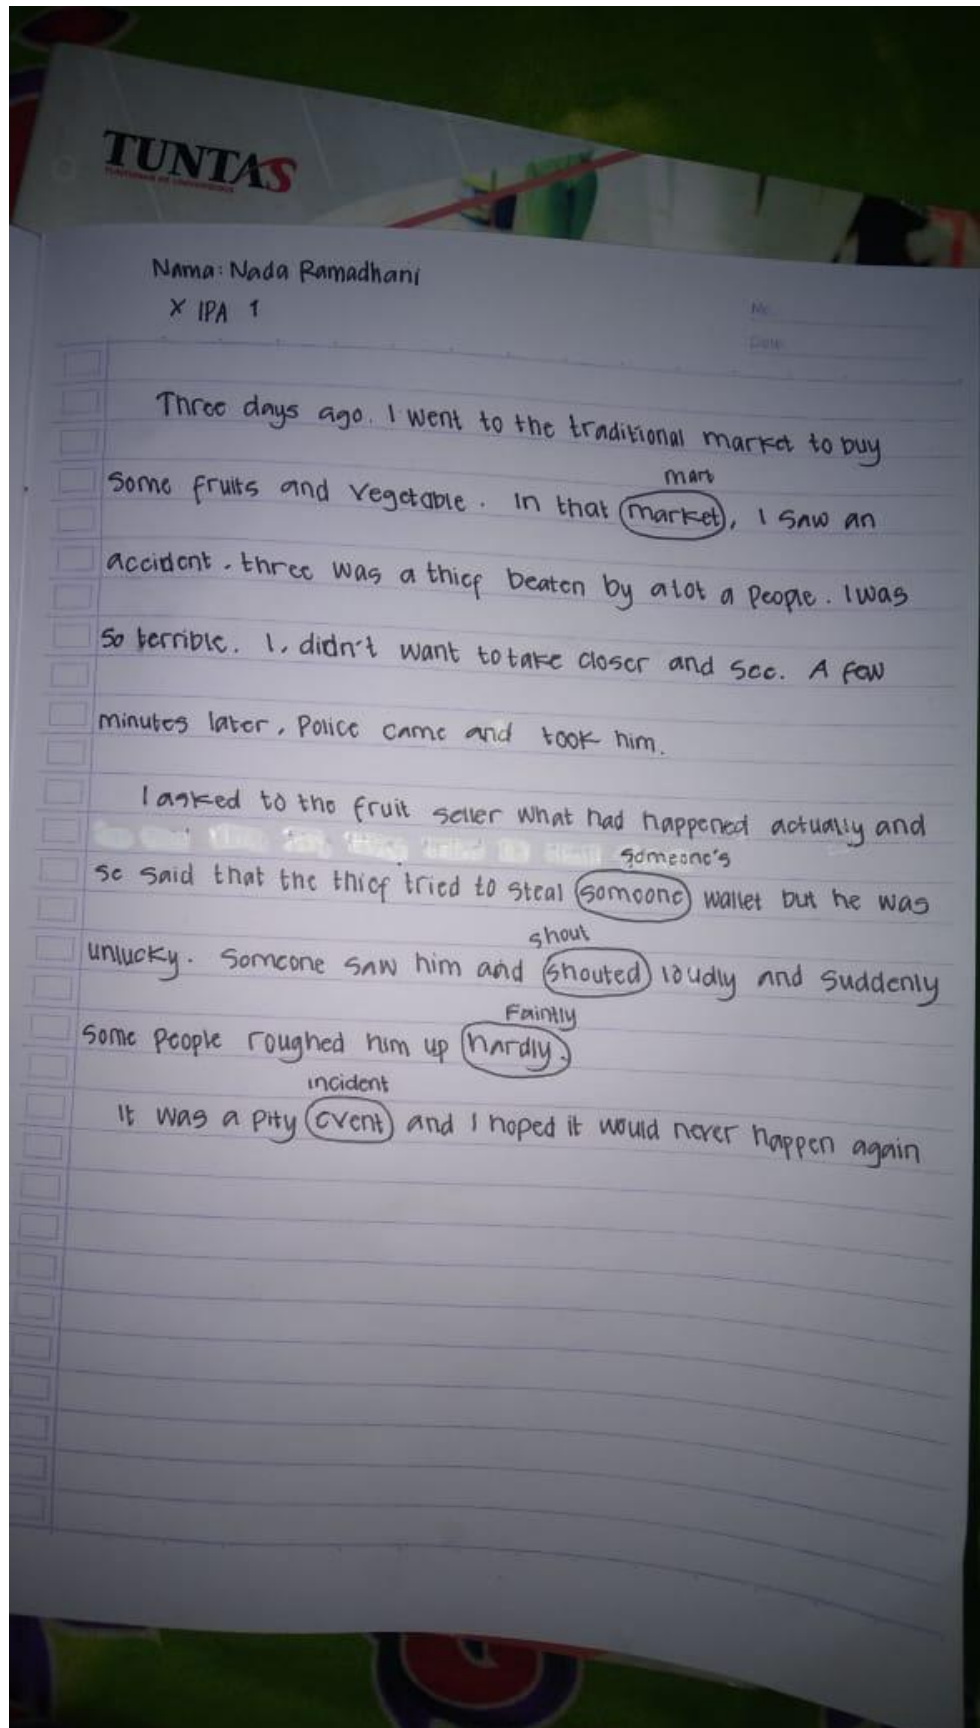 TUNTAS
Nama: Nada Ramadhani
X IPA 1
No
Date
Three days ago. I went to the traditional market to buy
mart
some fruits and vegetable. In that market, I saw an
accident. three was a thief beaten by alot a people. I was
so terrible. I, didn't want to take closer and see. A few
minutes later, Police came and took him.
I asked to the fruit seller what had happened actually and
someone's
se said that the thief tried to steal someone wallet but he was
shout
unlucky. Someone saw him and shouted loudly and suddenly
Faintly
some people roughed him up hardly.
incident
It was a pity event and I hoped it would never happen again